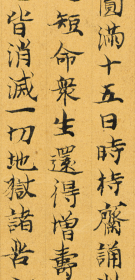 圓滿十五日時持齋誦
短命衆生還得增壽
皆消滅一切地獄諸苦